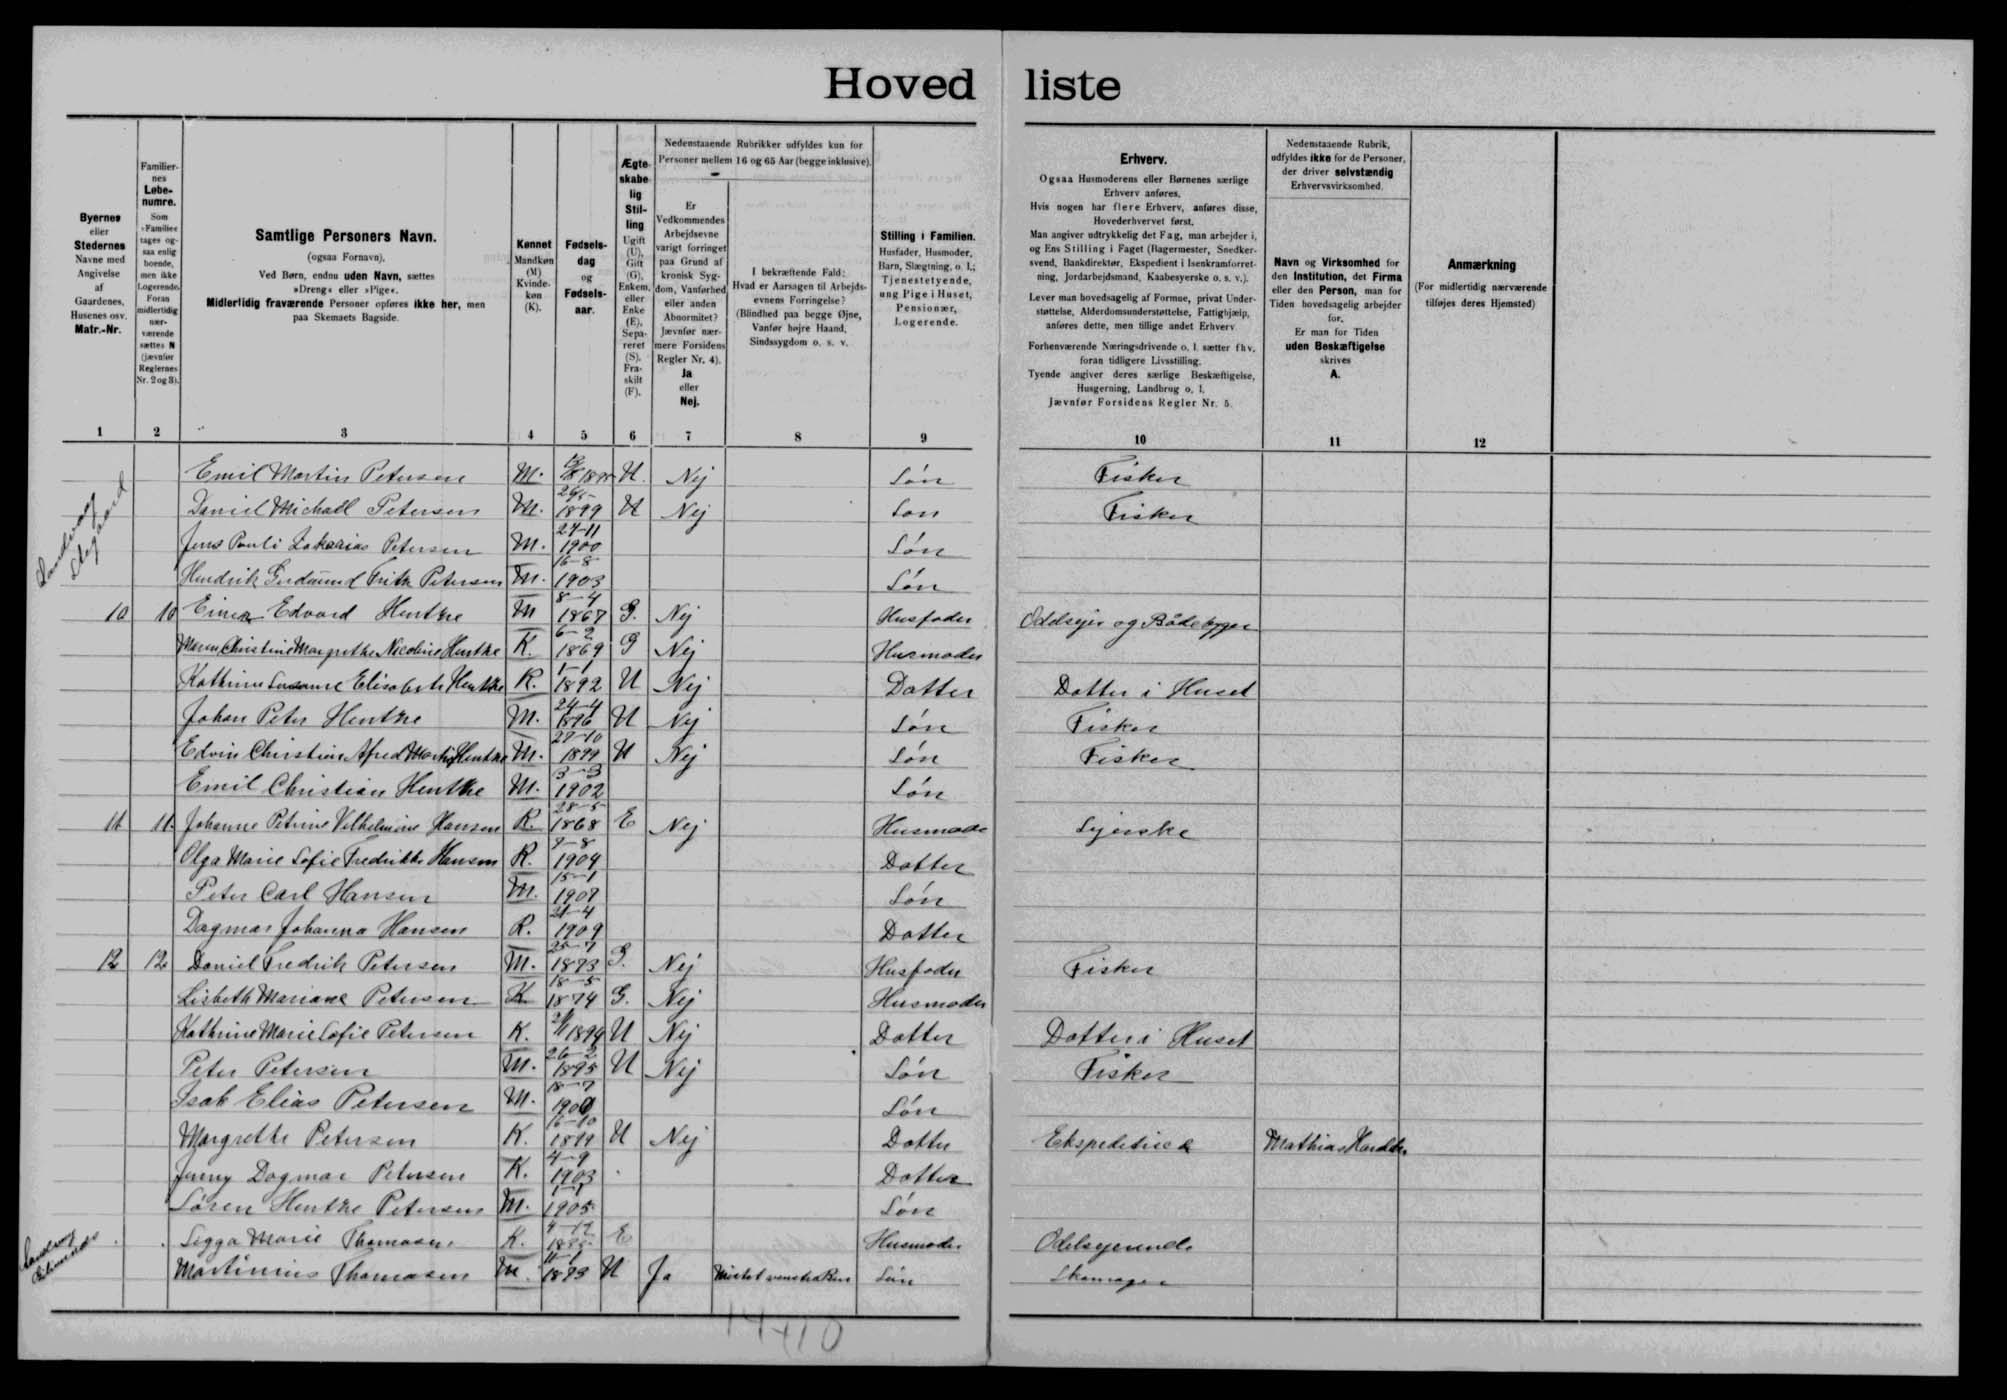 Hovedliste
Byernes eller Stedernes Navne med Angivelse af Gaardenes, Husenes osv. Matr.-Nr.
Familiernes Løbenumre. Som »Familie« tages ogsaa enlig boende, men ikke Logerende. Foran midlertidig nærværende sættes N (jævnfør Reglernes Nr. 2 og 3).
Samtlige Personers Navn.
(ogsaa Fornavn).
Ved Børn, endnu uden Navn, sættes »Dreng« eller »Pige«.
Midlertidig fraværende Personer opføres ikke her, men paa Skemaets Bagside.
Kønnet Mandkøn (M) Kvindekøn (K).
Fødselsdag og Fødselsaar.
Ægteskabelig Stilling Ugift (U), Gift (G), Enkem. eller Enke (E), Separeret (S), Fraskilt (F).
Nedenstaaende Rubrikker udfyldes kun for Personer mellem 16 og 65 Aar (begge inklusive).
Er Vedkommendes Arbejdsevne varigt forringet paa Grund af kronisk Sygdom, Vanførhed eller anden Abnormitet? Jævnfør nærmere Forsidens Regler Nr. 4). Ja eller Nej.
I bekræftende Fald: Hvad er Aarsagen til Arbejdsevnens Forringelse? (Blindhed paa begge Øjne, Vanfør højre Haand, Sindssygdom o. s. v.
Stilling i Familien.
Husfader, Husmoder, Barn, Slægtning, o. l.; Tjenestetyende, ung Pige i Huset, Pensionær, Logerende.
Erhverv.
Ogsaa Husmoderens eller Børnenes særlige Erhverv anføres.
Hvis nogen har flere Erhverv, anføres disse, Hovederhvervet først.
Man angiver udtrykkelig det Fag, man arbejder i, og Ens Stilling i Faget (Bagermester, Snedkersvend, Bankdirektør, Ekspedient i Isenkramforretning, Jordarbejdsmand, Kaabesyerske o. s. v.).
Lever man hovedsagelig af Formue, privat Understøttelse, Alderdomsunderstøttelse, Fattighjælp, anføres dette, men tillige andet Erhverv
Forhenværende Næringsdrivende o. l. sætter fhv. foran tidligere Livsstilling.
Tyende angiver deres særlige Beskæftigelse, Husgerning, Landbrug o. l.
Jævnfør Forsidens Regler Nr. 5.
Nedenstaaende Rubrik, udfyldes ikke for de Personer, der driver selvstændig Erhvervsvirksomhed.
Navn og Virksomhed for den Institution, det Firma eller den Person, man for Tiden hovedsagelig arbejder for.
Er man for Tiden uden Beskæftigelse skrives A.
Anmærkning
(For midlertidig nærværende tilføjes deres Hjemsted)
1 2 3 4 5 6 7 8 9 10 11 12
Emil Martin Petersen M. U. Nej Søn Fisker
Daniel Michall Petersen M. 1899 U Nej Søn Fisker
Jens Pauli Zakarias Petersen M. 24-11 1900 Søn
Hendrik Fritz Petersen M. 16-8 1903 Søn
10 10 Einer Edvard Hentze M 8-4 1867 G. Nej Husfader Oddsejer og Bådebygger
Maren Christine Margrethe Nicoline Hentze K. 6-2 1869 G Nej Husmoder
Kathrine Susanne Elisabeth Hentze K. 1-1 1892 U Nej Datter Datter i Huset
Johan Peter Hentze M. 24-4 1896 U Nej Søn Fisker
Edvin Christian Alfred Martin Hentze M. 27-10 1899 U Nej Søn Fisker
Emil Christian Hentze M. 3-3 1902 Søn
11 11. Johanne Petrine Vilhelmine Hansen K. 28-5 1868 E Nej Husmode Syerske
Olga Marie Sofie Fredrikke Hansen K. 9-8 1904 Datter
Peter Carl Hansen M. 15-1 1907 Søn
Dagmar Johanna Hansen K. 21-4 1909 Datter
12 12 Daniel Fredrik Petersen M. 25-7 1873 G. Nej Husfader Fisker
Lisbeth Mariane Petersen K 18-5 1874 G. Nej Husmoder
Kathrine Marie Sofie Petersen K. 1894 U Nej Datter Datter i Huset
Peter Petersen M. 26-2 1895 U Nej Søn Fisker
Isak Elias Petersen M. 18-7 1900 Søn
Margrethe Petersen K. 16-10 1899 U Nej Datter Ekspeditrice Mathias
Jenny Dagmar Petersen K. 4-9 1903 Datter
Søren Hentze Petersen M. 1-1 1905 Søn
Sigga Marie Thomasen K. 4-12 E Husmoder
Martinius Thomasen M. 11-1 1893 U Ja Mistet venstre Ben Søn Skomager
14+10